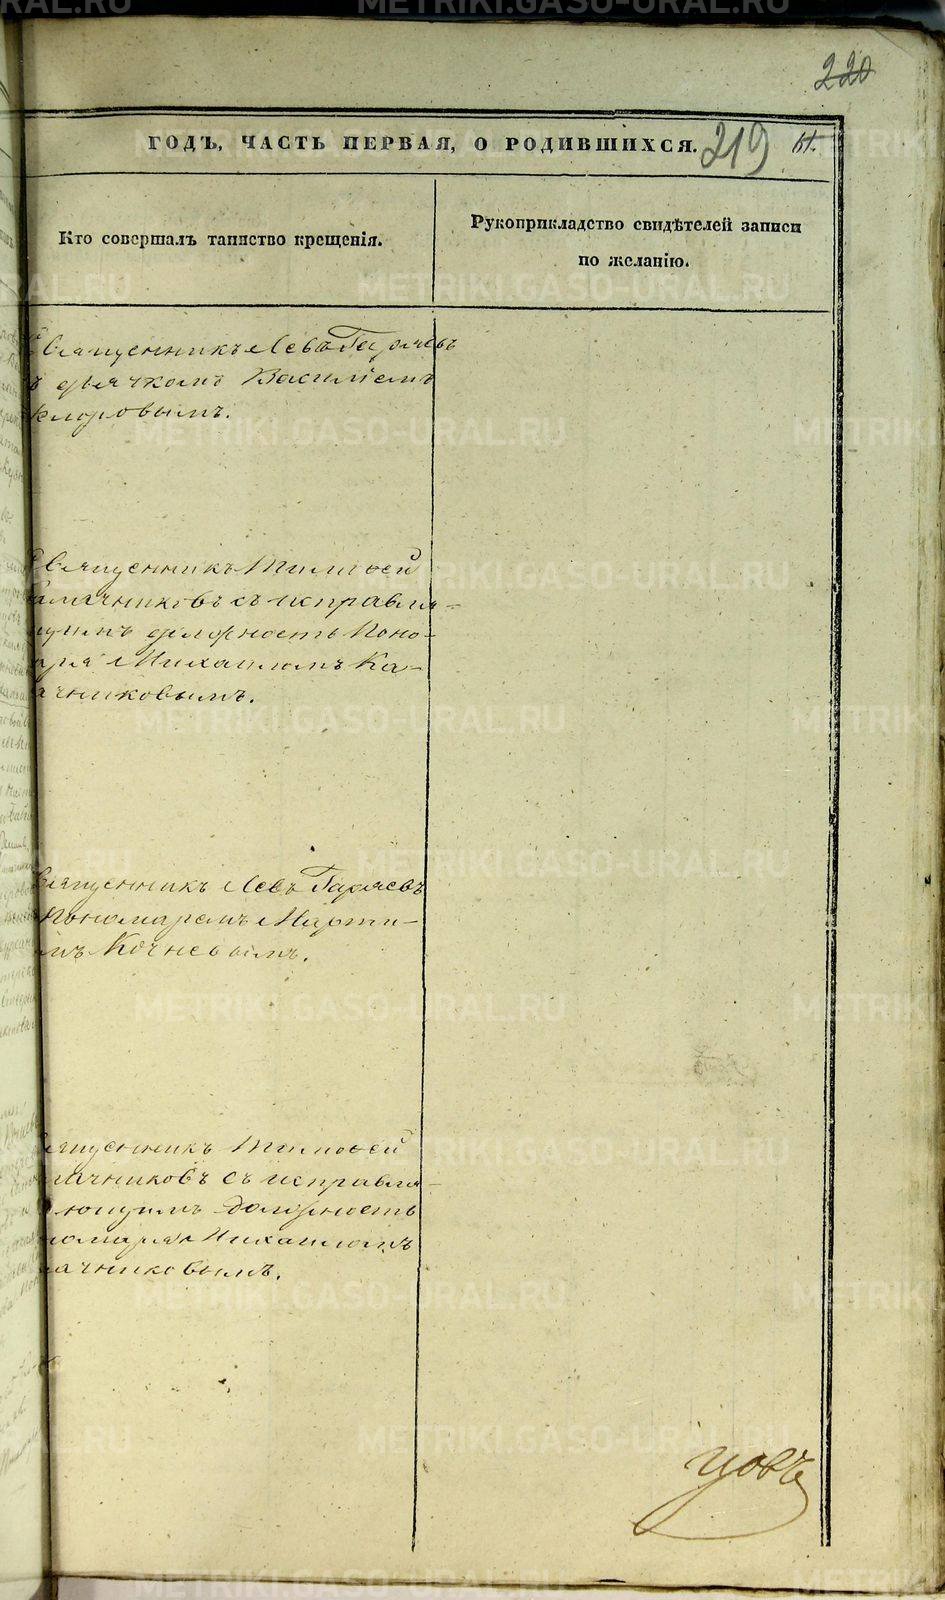 220
ГОДЪ, ЧАСТЬ ПЕРВАЯ, О РОДИВШИХСЯ. 219 61.
Кто совершалъ таинство крещенія.
Рукоприкладство свидѣтелей записи
по желанію.
Священникъ Левъ Гаряевъ
ъ дьячкомъ Василіемъ
Священникъ Тимоѳей
съ исправля-
ющимъ должность Поно-
аря Михаиломъ Ка-
ачниковымъ.
вященникъ Левъ Гаряевъ
Пономаремъ Марти-
мъ Кочневымъ.
ященникъ Тимоѳей
лачниковъ съ исправля-
ющимъ должность
номаря Михаиломъ
лачниковымъ.
цовъ
METRIKI.GASO-URAL.RU